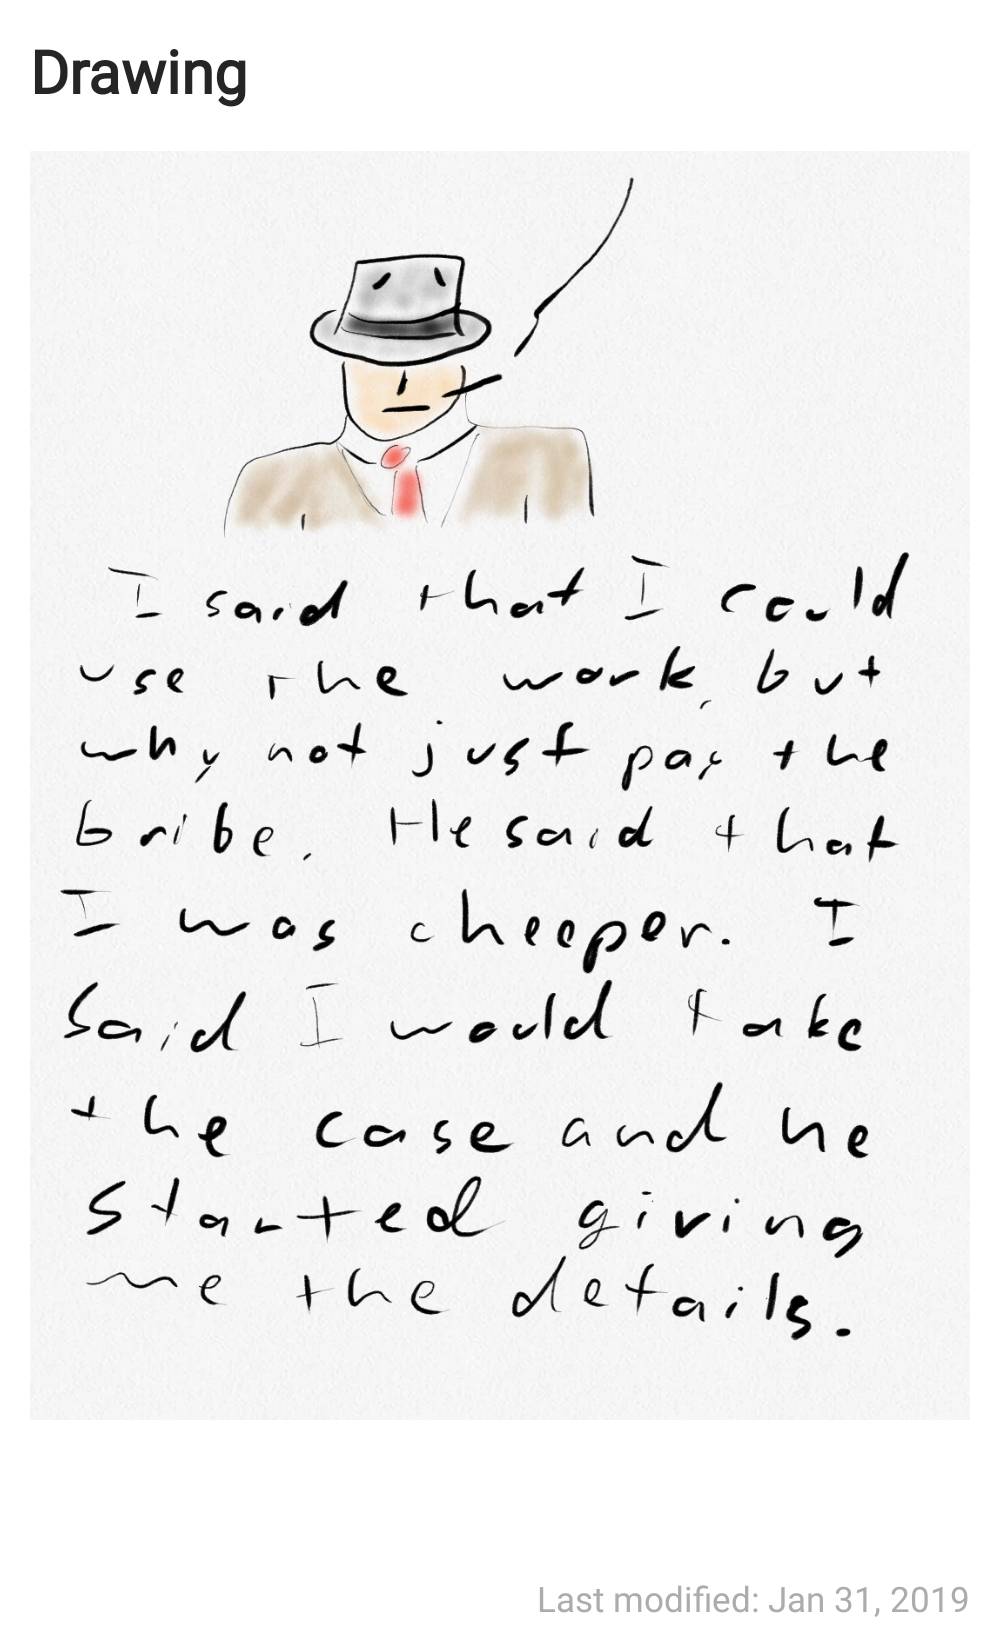 Drawing
I said that I could
use the work, but
why not just pay the
bribe. He said that
I was cheeper. I
said I would take
the case and he
started giving
me the details.
Last modified: Jan 31, 2019